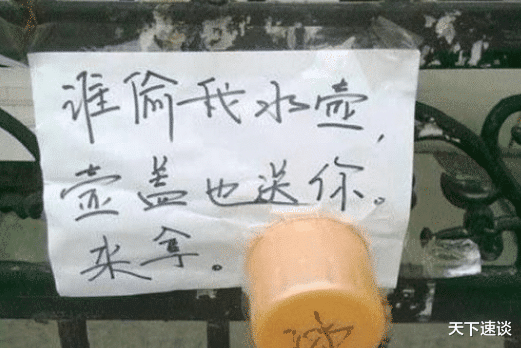 谁偷我水壶,
壶盖也送你。
来拿。
天下速谈